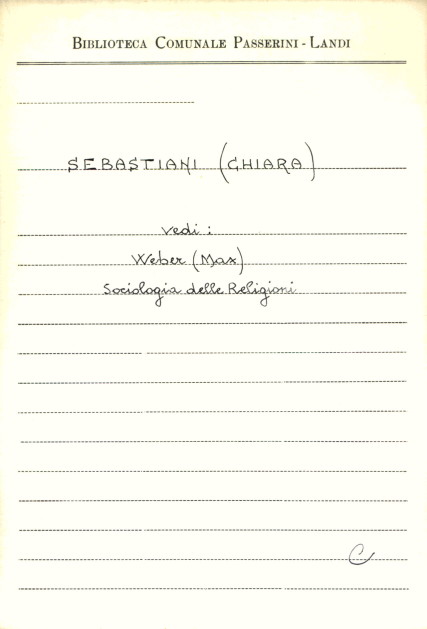 BIBLIOTECA COMUNALE PASSERINI - LANDI
SEBASTIANI (CHIARA)
vedi :
Weber (Max)
Sociologia delle Religioni
C